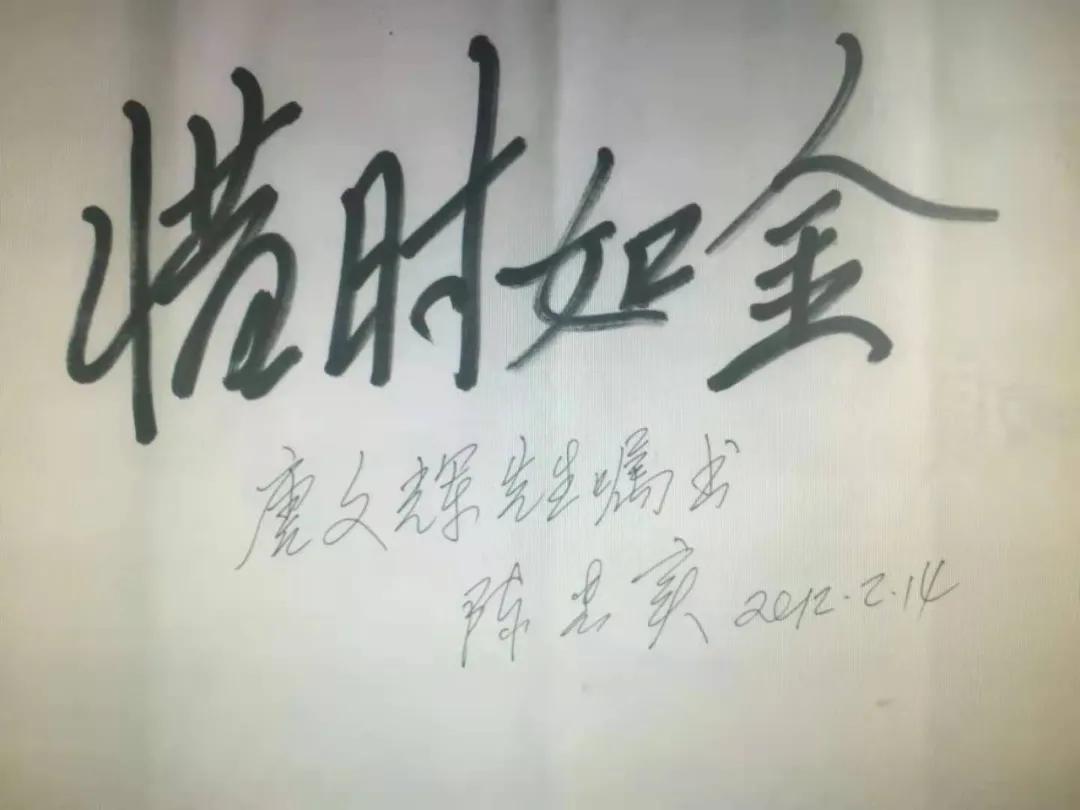 惜时如金
唐文辉先生嘱书
陈忠实 2012.2.14